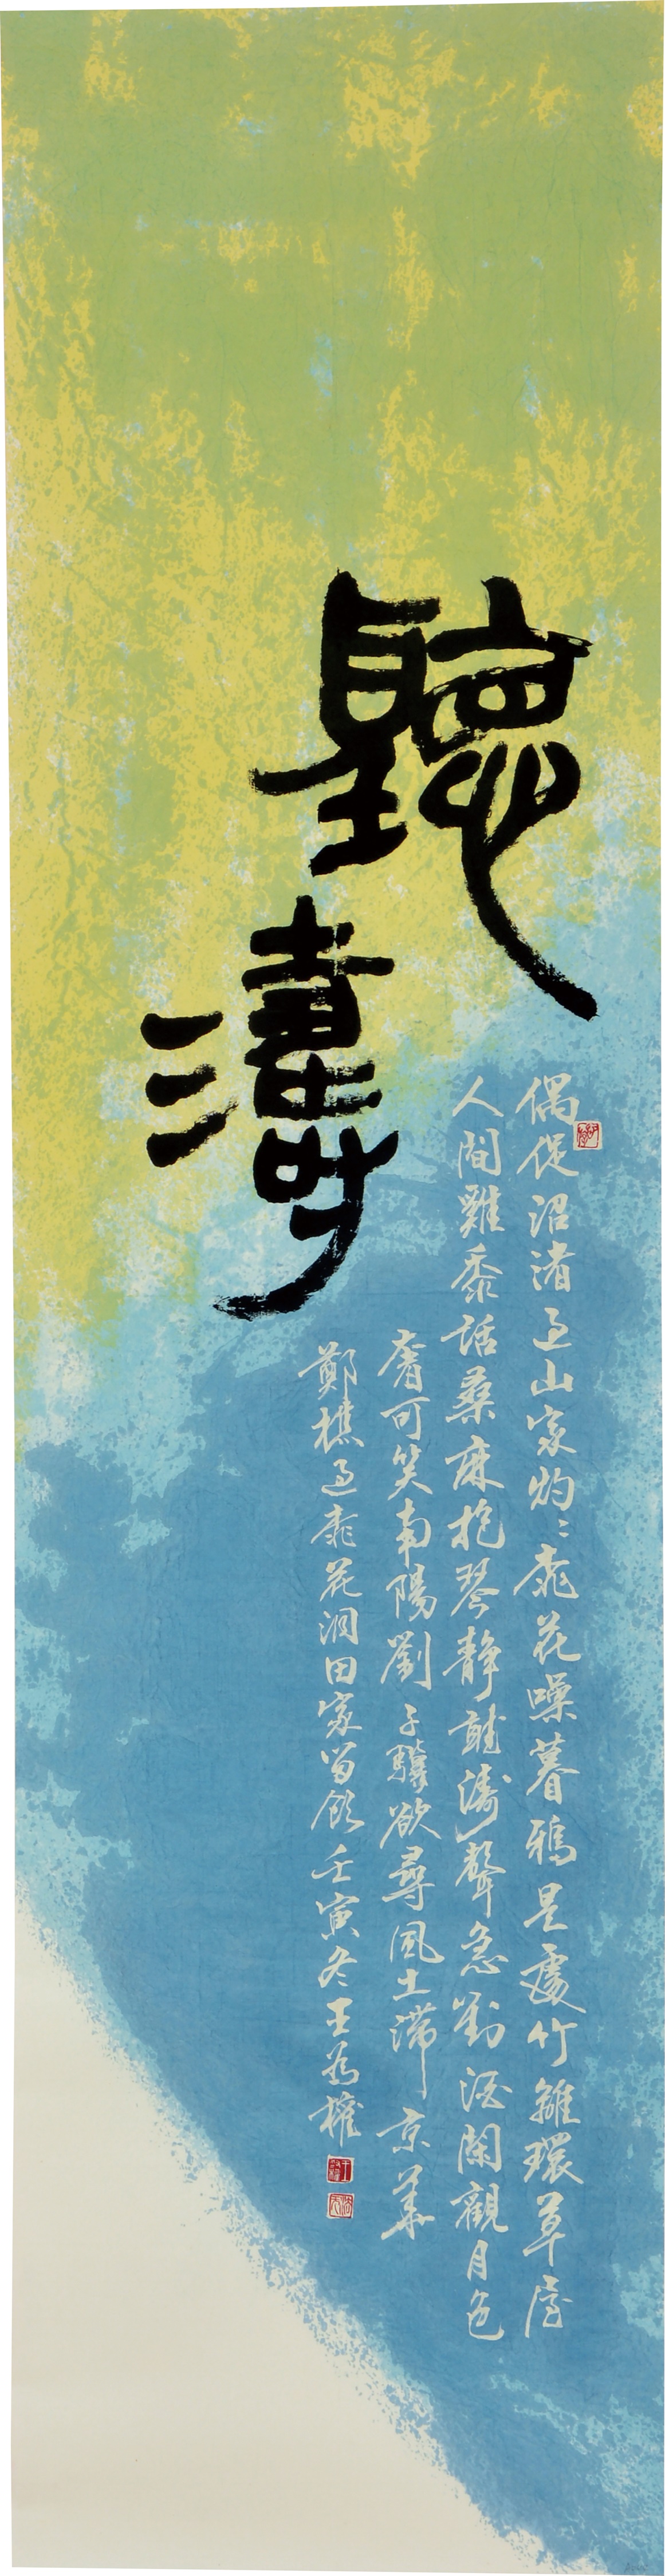 聽
濤
偶從沼渚過山家灼灼桃花噪暮鴉是處竹籬環草屋
人間雞黍話桑麻抱琴靜聽濤聲急對酒閑觀月色
奢可笑南陽劉子驥欲尋風土滯京華
鄭樵過桃花洞田家留飲壬寅冬王為權